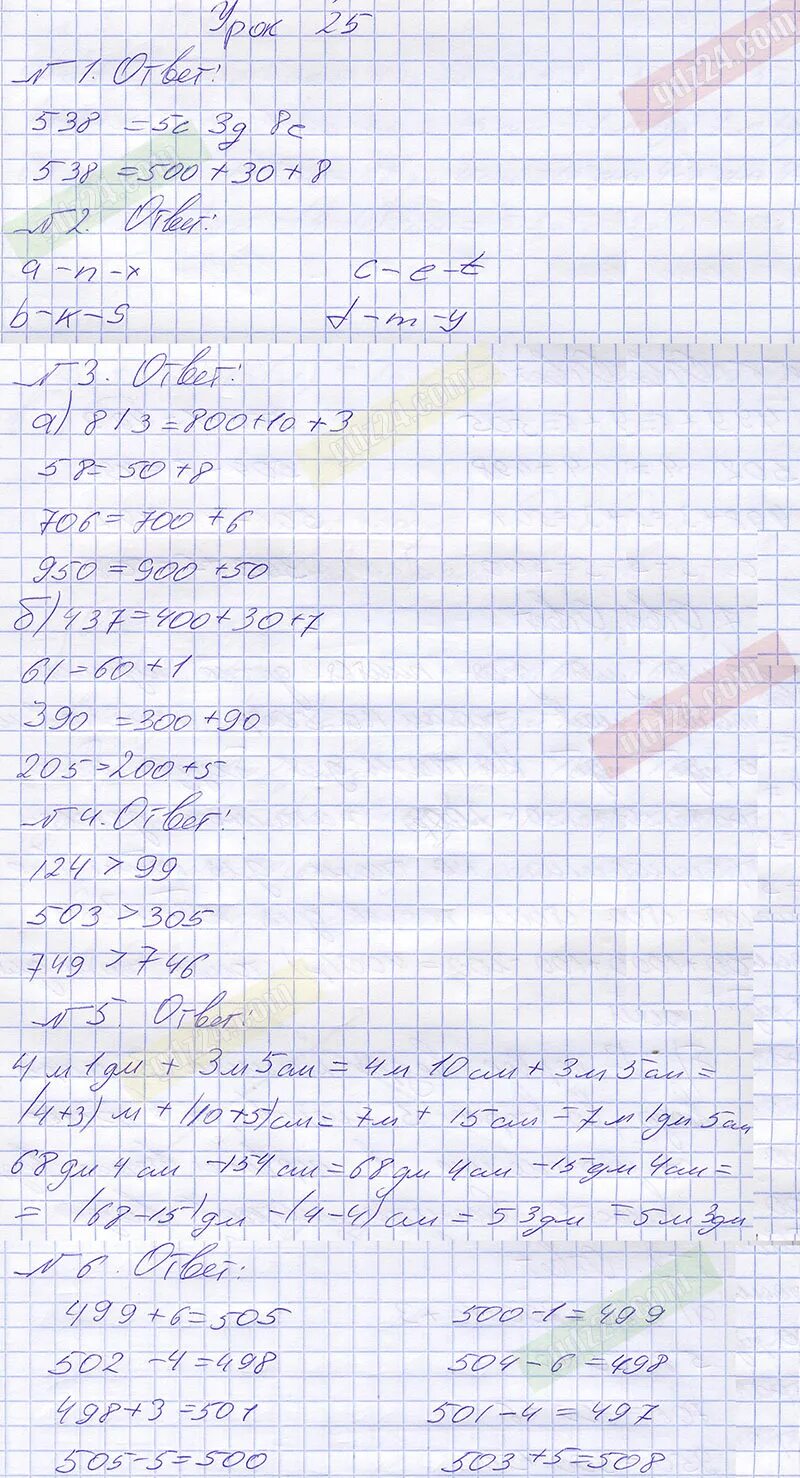 Урок 25
№ 1. Ответ:
538 = 5с 3д 8е
538 = 500 + 30 + 8
№ 2. Ответ:
a - n - x
c - e - t
b - к - s
d - m - y
№ 3. Ответ:
а) 813 = 800 + 10 + 3
58 = 50 + 8
706 = 700 + 6
950 = 900 + 50
б) 437 = 400 + 30 + 7
61 = 60 + 1
390 = 300 + 90
205 = 200 + 5
№ 4. Ответ:
124 > 99
503 > 305
749 > 746
№ 5. Ответ:
4 м 1 дм + 3 м 5 см = 4 м 10 см + 3 м 5 см =
(4+3) м + (10+5) см = 7 м + 15 см = 7 м 1 дм 5 см
68 дм 4 см - 154 см = 68 дм 4 см - 15 дм 4 см =
= (68-15) дм - (4-4) см = 53 дм = 5 м 3 дм
№ 6. Ответ:
499 + 6 = 505
500 - 1 = 499
502 - 4 = 498
504 - 6 = 498
498 + 3 = 501
501 - 4 = 497
505 - 5 = 500
503 + 5 = 508
gdz24.com
gdz24.com
gdz24.com
gdz24.com
gdz24.com
gdz24.com